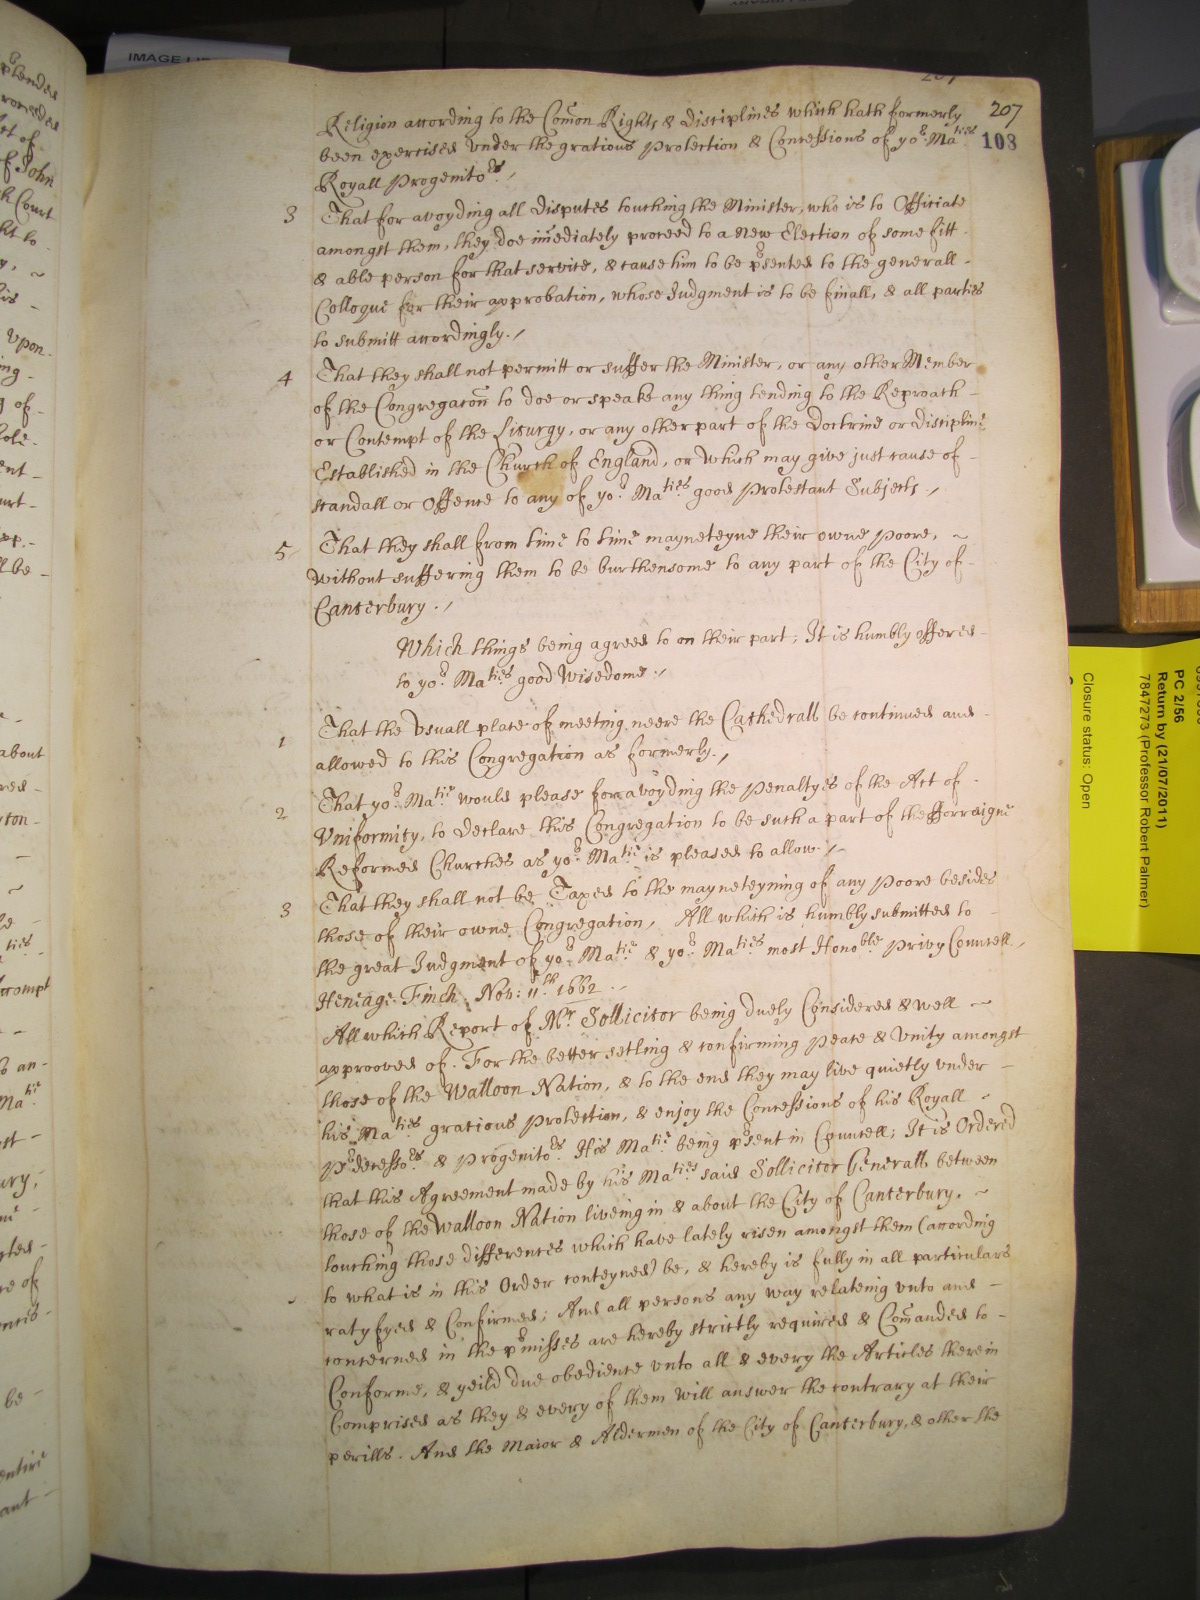 IMAGE LI
207
108
Religion according to the Com̃on Rights & Disciplines which hath formerly
been exercised under the gratious Protection & Concessions of yor. Maties
Royall Progenitors. /
3 That for avoyding all Disputes touching the Minister, who is to Officiate
amongst them, they doe im̃ediately proceed to a new Election of some fitt
& able person for that service, & cause him to be p̃sented to the generall -
Colloque for their approbation, whose Judgment is to be finall, & all parties
to submitt accordingly. /
4 That they shall not permitt or suffer the Minister, or any other Member
of the Congregacoñ to doe or speake any thing tending to the Reproach -
or Contempt of the Liturgy, or any other part of the Doctrine or Discipline
Established in the Church of England, or which may give just cause of -
scandall or Offence to any of yor. Maties good Protestant Subjects. /
5 That they shall from time to time mayneteyne their owne Poore, ~
without suffering them to be burthensome to any part of the City of -
Canterbury. /
Which things being agreed to on their part; It is humbly offered -
to yor. Maties good Wisedome. /
1 That the usuall place of meeting neere the Cathedrall be continued and -
allowed to this Congregation as formerly. /
2 That yor. Matie would please for avoyding the Penaltyes of the Act of -
Uniformity, to Declare this Congregation to be such a part of the fforreigne
Reformed Churches as yor. Matie is pleased to allow. /
3 That they shall not be Taxed to the mayneteyning of any Poore besides
those of their owne Congregation, All which is humbly submitted to -
the great Judgment of yor. Matie & yor. Maties most Honoble Privy Councell /
Heneage Finch. Nov: 11th 1662.
All which Report of Mr Sollicitor being duely Considered & well ~
approoved of. For the better setling & confirming Peace & Unity amongst
those of the Walloon Nation, & to the end they may live quietly under -
his Maties gratious Protection, & enjoy the Concessions of his Royall -
P̃decessors. & Progenitors. His Matie. being p̃sent in Councell; It is Ordered
that this Agreement made by his Maties. said Sollicitor Generall between
those of the Walloon Nation liveing in & about the City of Canterbury. ~
touching those differences which have lately risen amongst them (according
to what is in this Order conteyned) be, & hereby is fully in all particulars
ratyfyed & Confirmed; And all persons any way relateing unto and -
concerned in the p̃misses are hereby strictly required & Com̃anded to -
Conforme, & yeild due obedience unto all & every the Articles therein
Comprised as they & every of them will answer the contrary at their
perills. And the Maior & Aldermen of the City of Canterbury, & other the
Closure status: Open
PC 2/56
Return by (21/07/2011)
7847273 (Professor Robert Palmer)